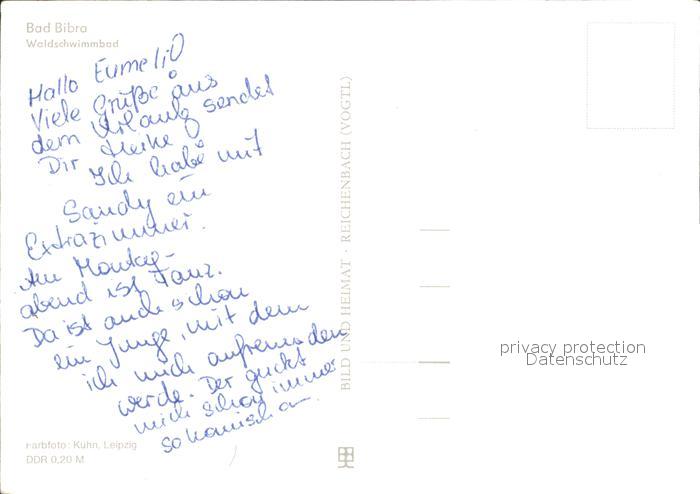 Bad Bibra
Waldschwimmbad
Hallo Eumeli!
Viele Grüße aus
dem Urlaub sendet
Dir Heike
Ich habe mit
Sandy ein
Extrazimmer.
Am Montag-
abend ist Tanz.
Da ist auch schon
ein Junge, mit dem
ich mich anfreunden
werde. Der guckt
mich schon immer
so komisch an.
Farbfoto: Kuhn, Leipzig
DDR 0,20 M
BILD UND HEIMAT · REICHENBACH (VOGTL)
privacy protection
Datenschutz